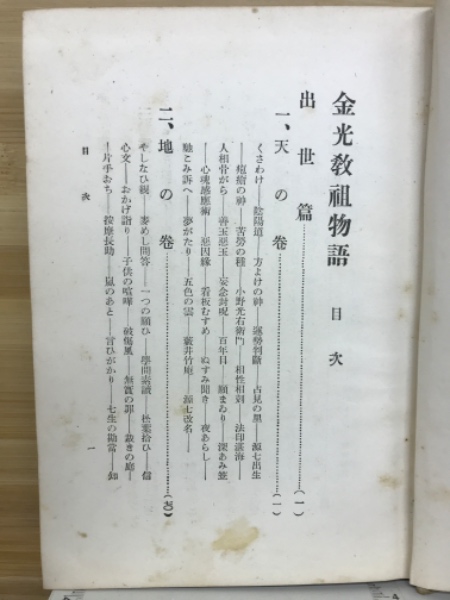 金光教祖物語 目次
出世篇……(一)
一、天の卷……(一)
くさわけ——陰陽道——方よけの神——運勢判斷——占見の里——源七出生
——疱瘡の神——苦勞の種——小野光右衛門——相性相剋——法印湛海——
人相骨がら——善玉惡玉——妄念封呪——百年目——願まゐり——深あみ笠
——心魂感應術——惡因緣——看板むすめ——ぬすみ聞き——夜あらし——
馳こみ訴へ——夢がたり——五色の雲——藪井竹庵——源七改名——
二、地の卷……
やしなひ親——麥めし問答——一つの願ひ——學問素讀——松葉拾ひ——信
心文——おかげ詣り——子供の喧嘩——破傷風——無實の罪——裁きの廊——
——片手おち——按摩長助——嵐のあと——言ひがかり——七生の勘當——
目次
一